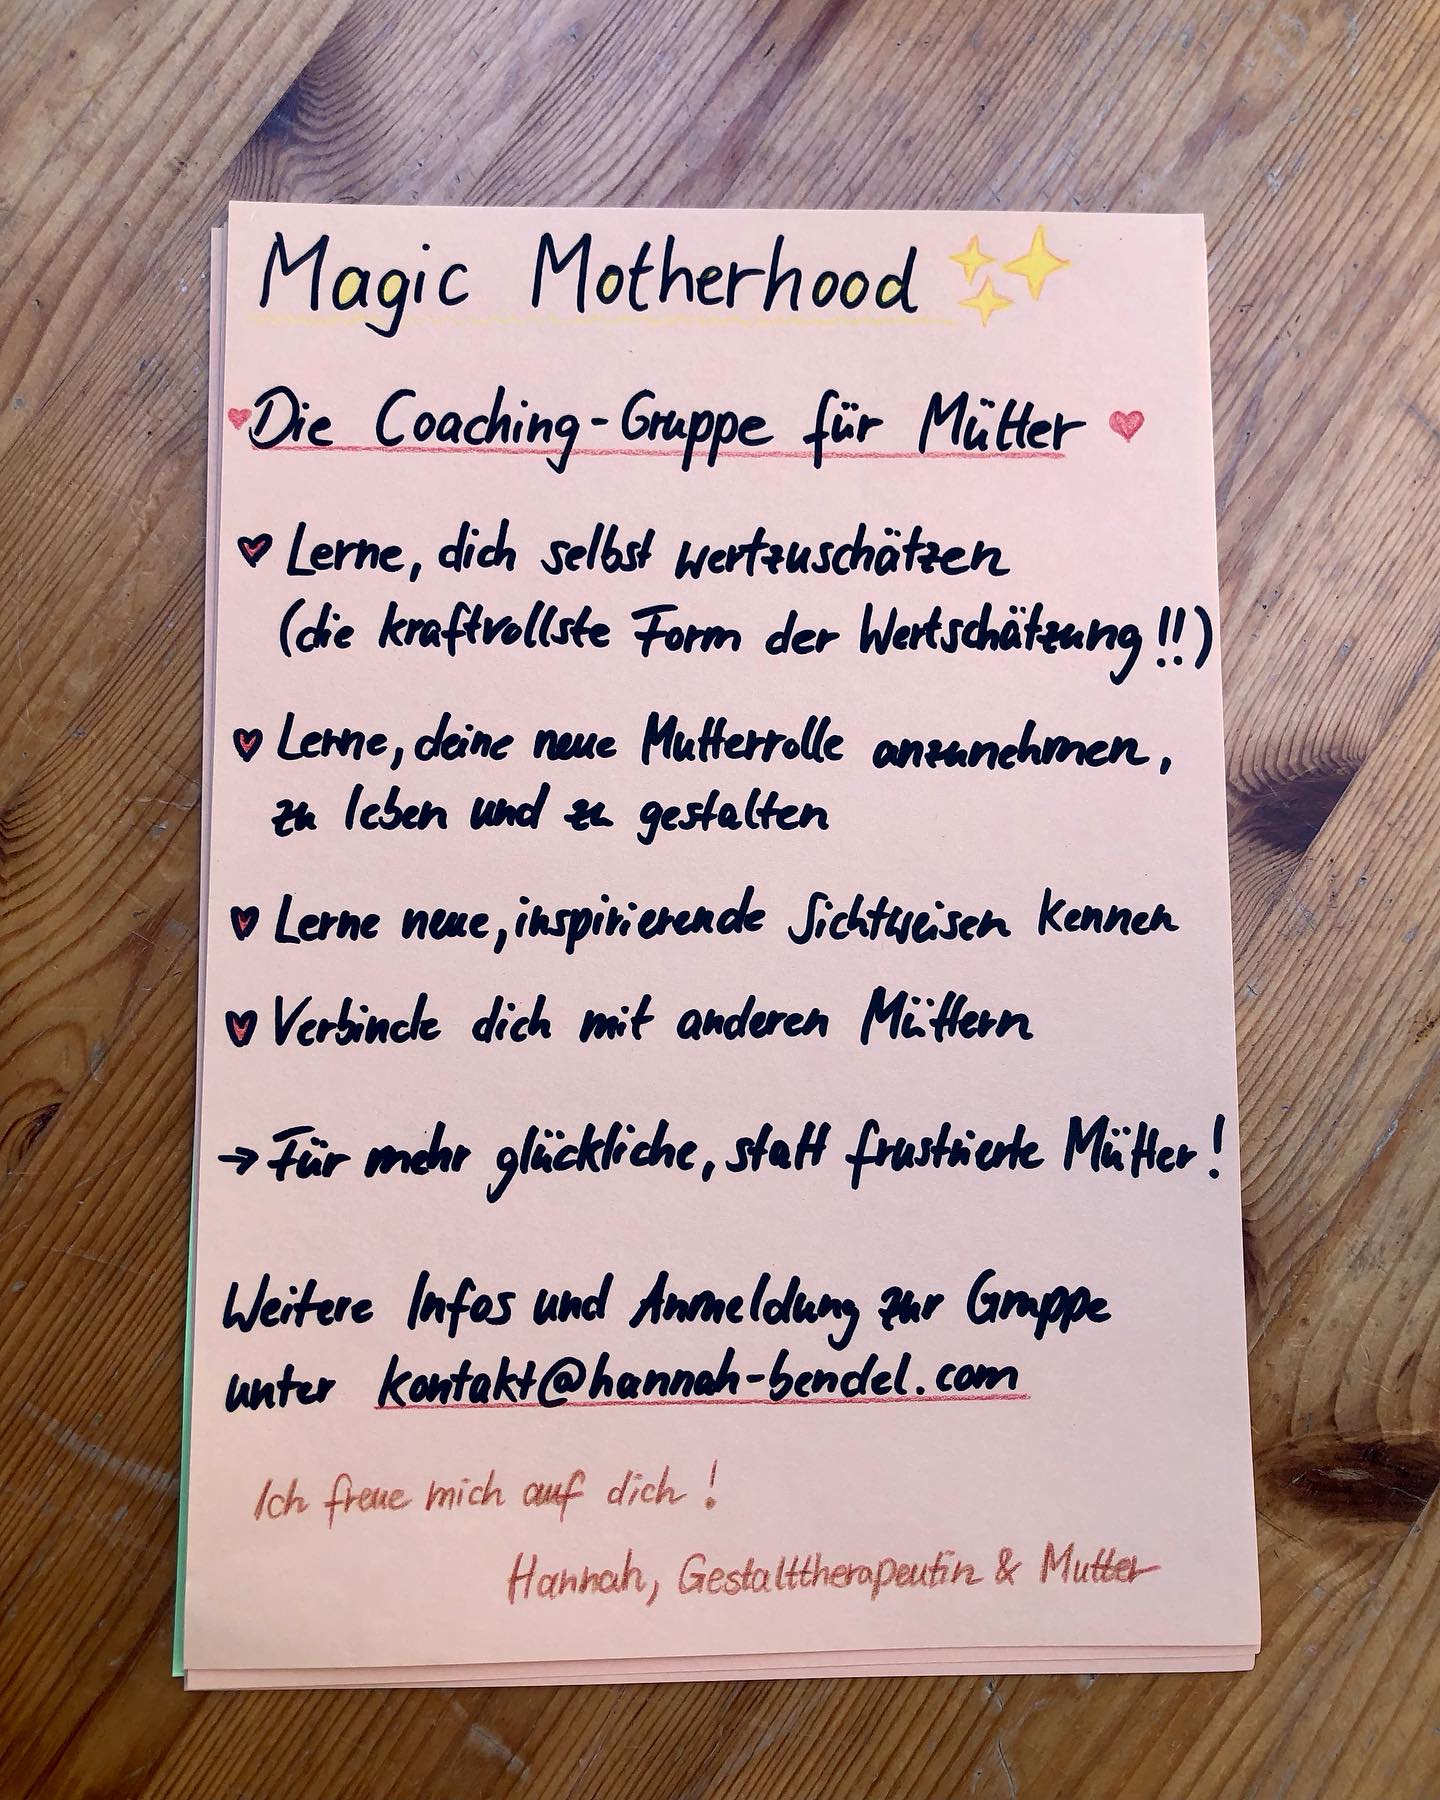 Magic Motherhood
Die Coaching-Gruppe für Mütter
Lerne, dich selbst wertzuschätzen
(die kraftvollste Form der Wertschätzung!!)
Lerne, deine neue Mutterrolle anzunehmen,
zu leben und zu gestalten
Lerne neue, inspirierende Sichtweisen kennen
Verbinde dich mit anderen Müttern
→ Für mehr glückliche, statt frustrierte Mütter!
Weitere Infos und Anmeldung zur Gruppe
unter kontakt@hannah-bendel.com
Ich freue mich auf dich!
Hannah, Gestalttherapeutin & Mutter